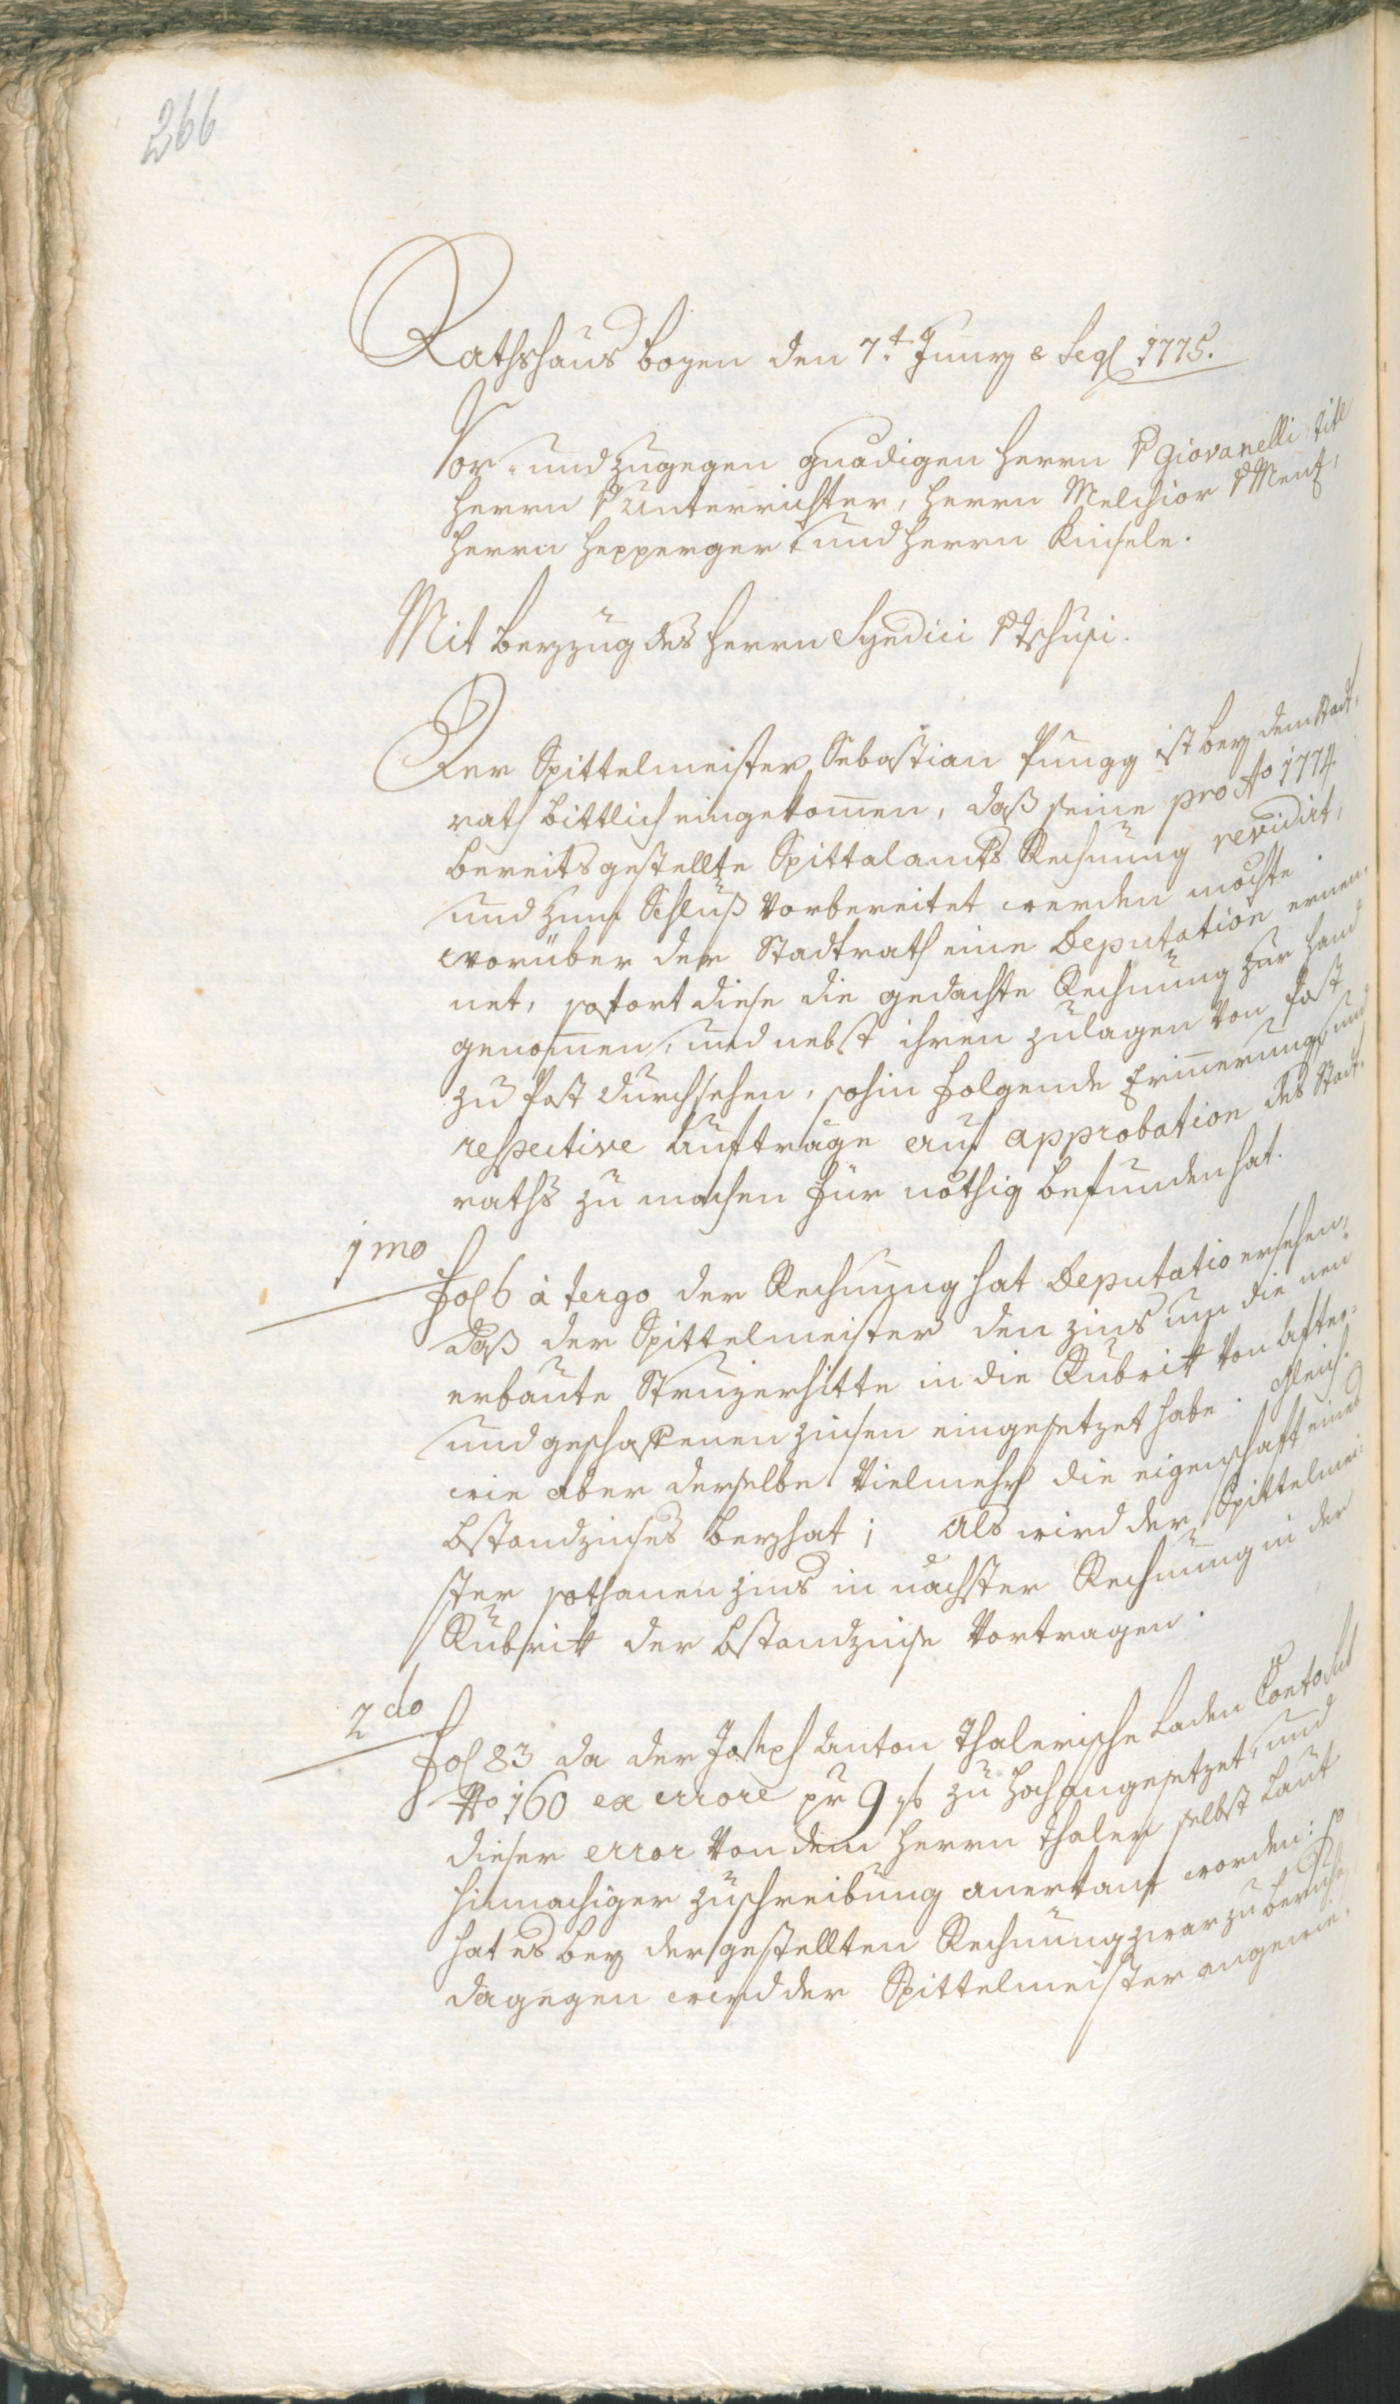 266
Rathshaus Bozen den 7.t Juny & Seql 1775.
Vor- und zugegen gnädigen Herrn v Giovanelli tite
Herrn v Unterrichter, Herrn Melchior v Menz,
Herrn Hepperger und Herrn Kinsele.
Mit Beyzug des Herrn Syndici v Tschusi.
Der Spittelmeister Sebastian Pungg ist bey dem Stadt,
rath bittlich eingekom̄en, daß seine pro Ao 1774
bereits gestellte Spittalamts Rechnung revidirt,
und zum Schluß vorbereitet werden möchte.
worüber der Stadtrath eine Deputation ernen,
net, sofort diese die gedachte Rechnung zur Hand
genom̄en, und nebst ihren Zulagen von Post
zu Post durchsehen, sohin folgende Erin̄erungs und
respective Aufträge auf approbation des Stadt,
raths zu machen für nöthig befunden hat.
1mo
fol 6 à tergo der Rechnung hat Deputatio ersehen,
daß der Spittelmeister den Zins um die neu
erbaute Struzerhitte in die Rubrik von After=
und geschaffenen Zinsen eingesetzet habe. Gleich.
wie aber derselbe vielmehr die eigenschaft eines
Bstandzinses beyhat; Als wird der Spittelmei:
ster sothanen Zins in nächster Rechnung in der
Rubrik der Bstandzinse vortragen.
2do
fol 83 da der Joseph Anton Thalerische Laden Conto sub
No 160 ex errore pr 9 x zu hoch angesetzet, und
dieser error von dem Herrn Thaler selbst laut
hinnachiger Zuschreibung anerkant worden: so
hat es bey der gestellten Rechnung zwar zu beruhe,
dagegen wird der Spittelmeister angewie,